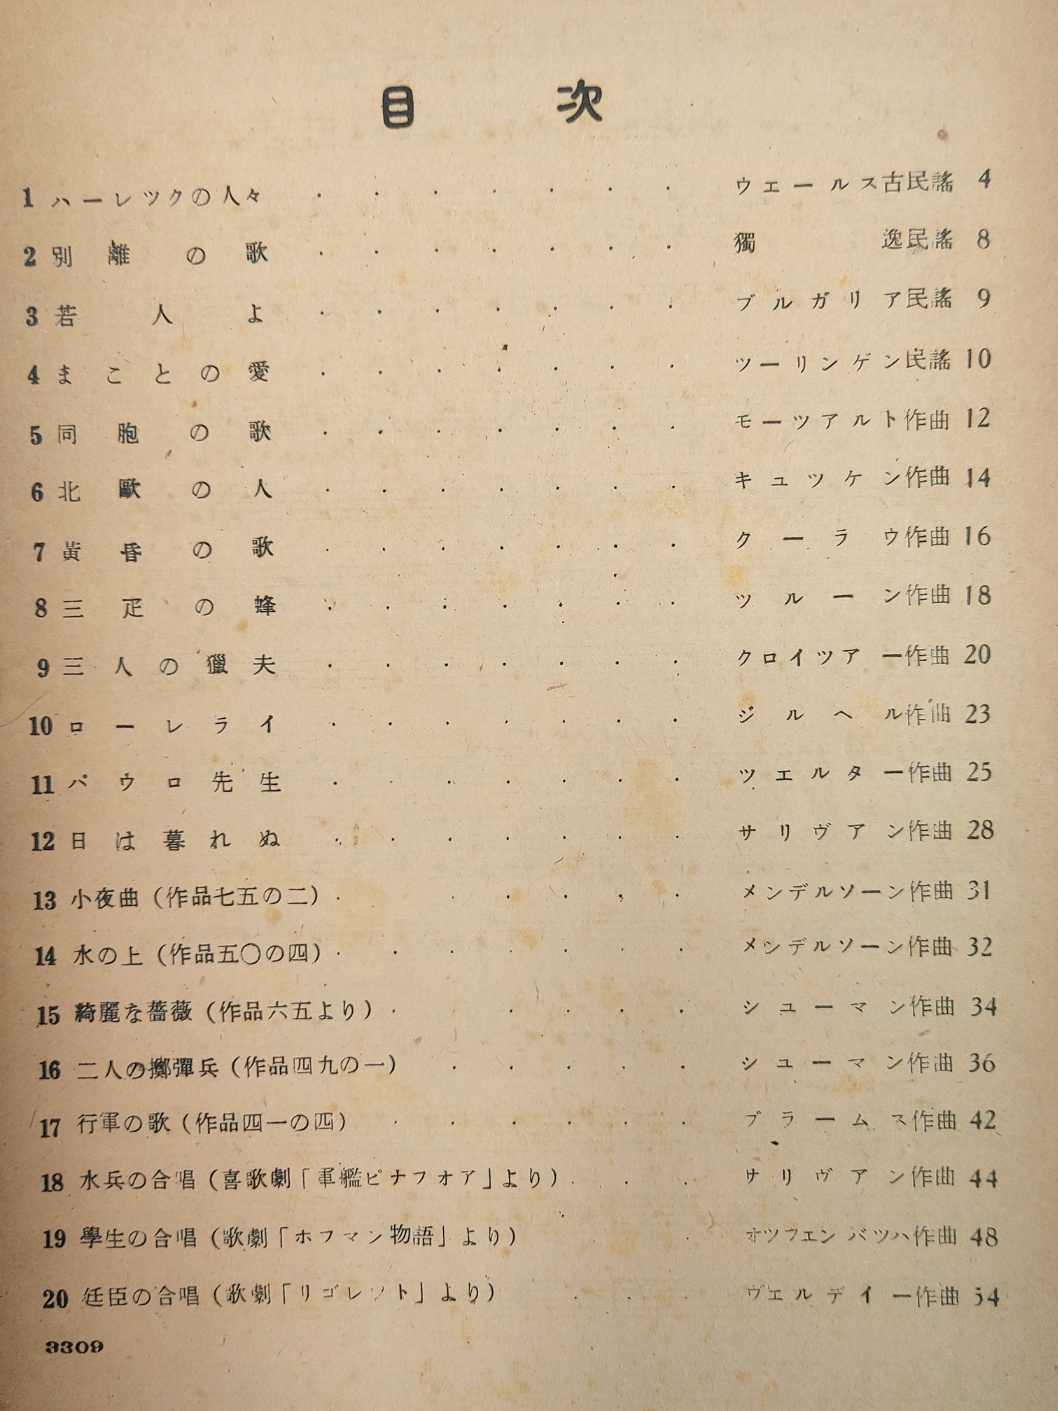 目次
1 ハーレツクの人々 ・・・・・・・ ウエールス古民謠 4
2 別離の歌 ・・・・・・・ 獨逸民謠 8
3 若人よ ・・・・・・・ ブルガリア民謠 9
4 まことの愛 ・・・・・・・ ツーリンゲン民謠 10
5 同胞の歌 ・・・・・・・ モーツアルト作曲 12
6 北歐の人 ・・・・・・・ キユツケン作曲 14
7 黄昏の歌 ・・・・・・・ クーラウ作曲 16
8 三疋の蜂 ・・・・・・・ ツルーン作曲 18
9 三人の獵夫 ・・・・・・・ クロイツアー作曲 20
10 ローレライ ・・・・・・・ ジルヘル作曲 23
11 パウロ先生 ・・・・・・・ ツエルター作曲 25
12 日は暮れぬ ・・・・・・・ サリヴアン作曲 28
13 小夜曲(作品七五の二)・・・・・・ メンデルソーン作曲 31
14 水の上(作品五〇の四)・・・・・・・ メンデルソーン作曲 32
15 綺麗な薔薇(作品六五より)・・・・・ シユーマン作曲 34
16 二人の擲彈兵(作品四九の一)・・・・・ シユーマン作曲 36
17 行軍の歌(作品四一の四)・・・・・・ ブラームス作曲 42
18 水兵の合唱(喜歌劇「軍艦ピナフオア」より)・・・ サリヴアン作曲 44
19 學生の合唱(歌劇「ホフマン物語」より)・ オツフエンバツハ作曲 48
20 廷臣の合唱(歌劇「リゴレツト」より)・・・ ヴエルデイー作曲 54
3309